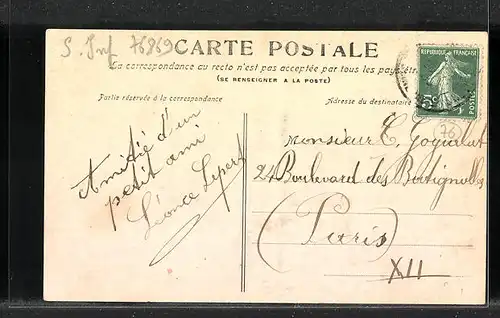 S. Inf 76869
CARTE POSTALE
La correspondance au recto n'est pas acceptée par tous les pays étr
(SE RENSEIGNER A LA POSTE)
Partie réservée à la correspondance
Adresse du destinataire
REPUBLIQUE FRANÇAISE
5c
POSTES
76
Amitié d'un
petit ami
Léonce Lepert
Monsieur
24 Boulevard des Batignolles
(Paris)
XII